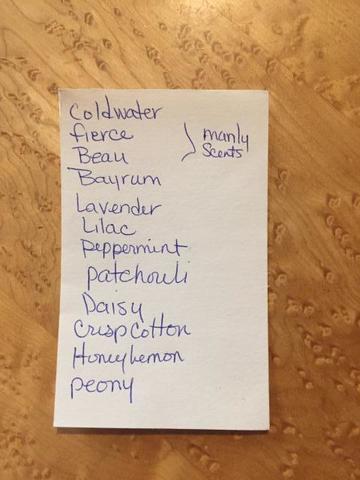 Coldwater
fierce
Beau
Bayrum
manly
Scents
Lavender
Lilac
Peppermint
patchouli
Daisy
Crisp Cotton
Honey Lemon
peony